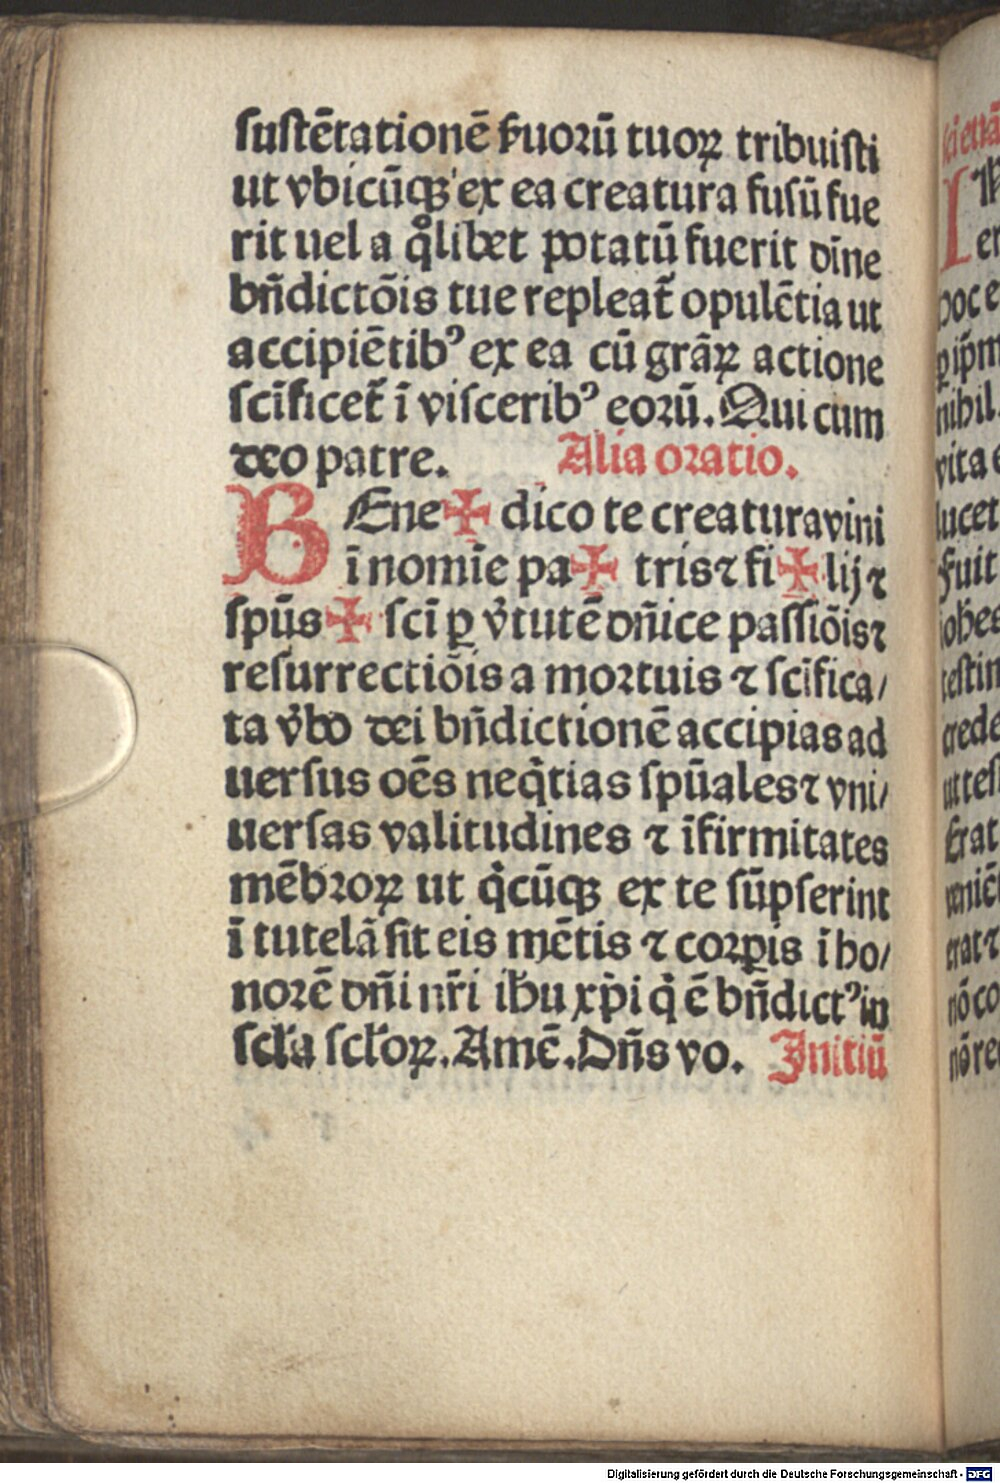 suſtētationē ſ̄uoꝛū tuoꝝ tribuiſti
ut vbicūqꝫ ex ea creatura fusū fue
rit uel a qͦlibet potatū fuerit dīne
bn̄dictōis tue repleat̄ opulētia ut
accipiētibꝰ ex ea cū grāꝝ actione
ſcīficet̄ ī viſceribꝰ eoꝛū. Qui cum
deo patre. Alia oꝛatio.
BEne✠dico te creatura vini
ī nomīe pa✠tris ⁊ fi✠lij ⁊
ſpūs✠ſcī ꝑ v̓tutē dn̄ice paſſiōis ⁊
reſurrectiōis a moꝛtuis ⁊ ſcīfica/
ta v̓bo dei bn̄dictionē accipias ad
uerſus oēs neq̇tias ſpūales ⁊ vni/
uerſas valitudines ⁊ īfirmitates
mēbꝛoꝝ ut q̇cūqꝫ ex te ſūpſerint
ī tutelā ſit eis mētis ⁊ coꝛꝑis ī ho/
noꝛē dn̄i nr̄i ih̄u xp̄i q̇ ē bn̄dictꝰ in
ſcl̄a ſcl̄oꝝ. Amē. Dn̄s vo. Initiū
Digitalisierung gefördert durch die Deutsche Forschungsgemeinschaft - DFG